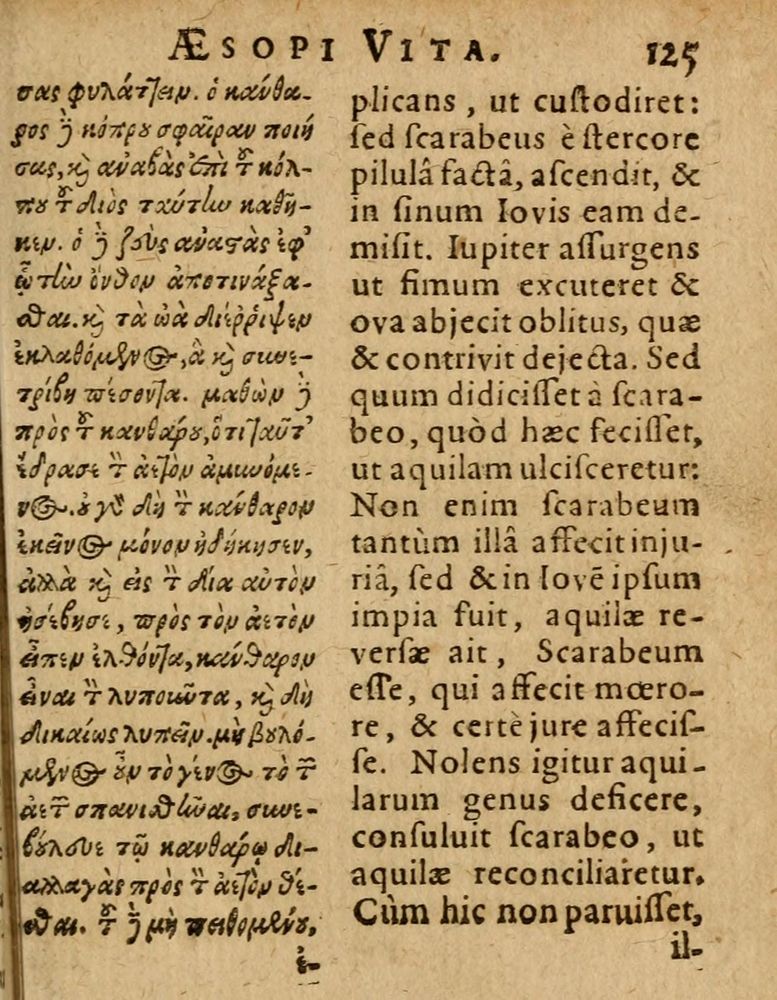 ÆSOPI VITA. 125
σας φυλάττειν. ὁ κάνθα-
ρος ἢ κόπρου σφαῖραν ποιή
σας, καὶ ἀναβὰς ἐπὶ τ κόλ-
που τ Διὸς ταύτην καθῆ-
κεν. ὁ ζεὺς ἀναστὰς ἐφ'
ᾧ τὴν ὄνθον ἀποτινάξα-
σθαι. καὶ τὰ ὠὰ διέρριψεν
ἐκλαθόμενος, ἃ καὶ συνε-
τρίβη πεσόντα. μαθὼν
πρὸς τ κανθάρου, ὅτι ταῦτ'
ἔδρασε τ ἀετὸν ἀμυνόμε-
νος. οὐ γδ δὴ τ κάνθαρον
ἐκεῖνος μόνον ἠδίκησεν,
ἀλλὰ καὶ εἰς τ Δία αὐτὸν
ἠσέβησε, πρὸς τὸν ἀετὸν
εἶπεν ἐλθόντα, κάνθαρον
εἶναι τ λυποιῶτα, καὶ δὴ
δικαίως λυπεῖν. μὴ βουλό-
μενος οὖν τὸ γένος τὸ τ
ἀετ σπανισθῆναι, συνε-
βούλευε τῷ κανθάρῳ δι-
αλλαγὰς πρὸς τ ἀετὸν θέ-
σθαι. τ μὴ πειθομένου,
ἐ-
plicans, ut cuſtodiret:
ſed ſcarabeus è ſtercore
pilulâ factâ, aſcendit, &
in ſinum Iovis eam de-
miſit. Iupiter aſſurgens
ut fimum excuteret &
ova abjecit oblitus, quæ
& contrivit dejecta. Sed
quum didiciſſet à ſcara-
beo, quòd hæc feciſſet,
ut aquilam ulciſceretur:
Non enim ſcarabeum
tantùm illâ affecit inju-
riâ, ſed & in Iovē ipſum
impia fuit, aquilæ re-
verſæ ait, Scarabeum
eſſe, qui affecit mœro-
re, & certè jure affeciſ-
ſe. Nolens igitur aqui-
larum genus deficere,
conſuluit ſcarabeo, ut
aquilæ reconciliaretur.
Cùm hic non paruiſſet,
il-